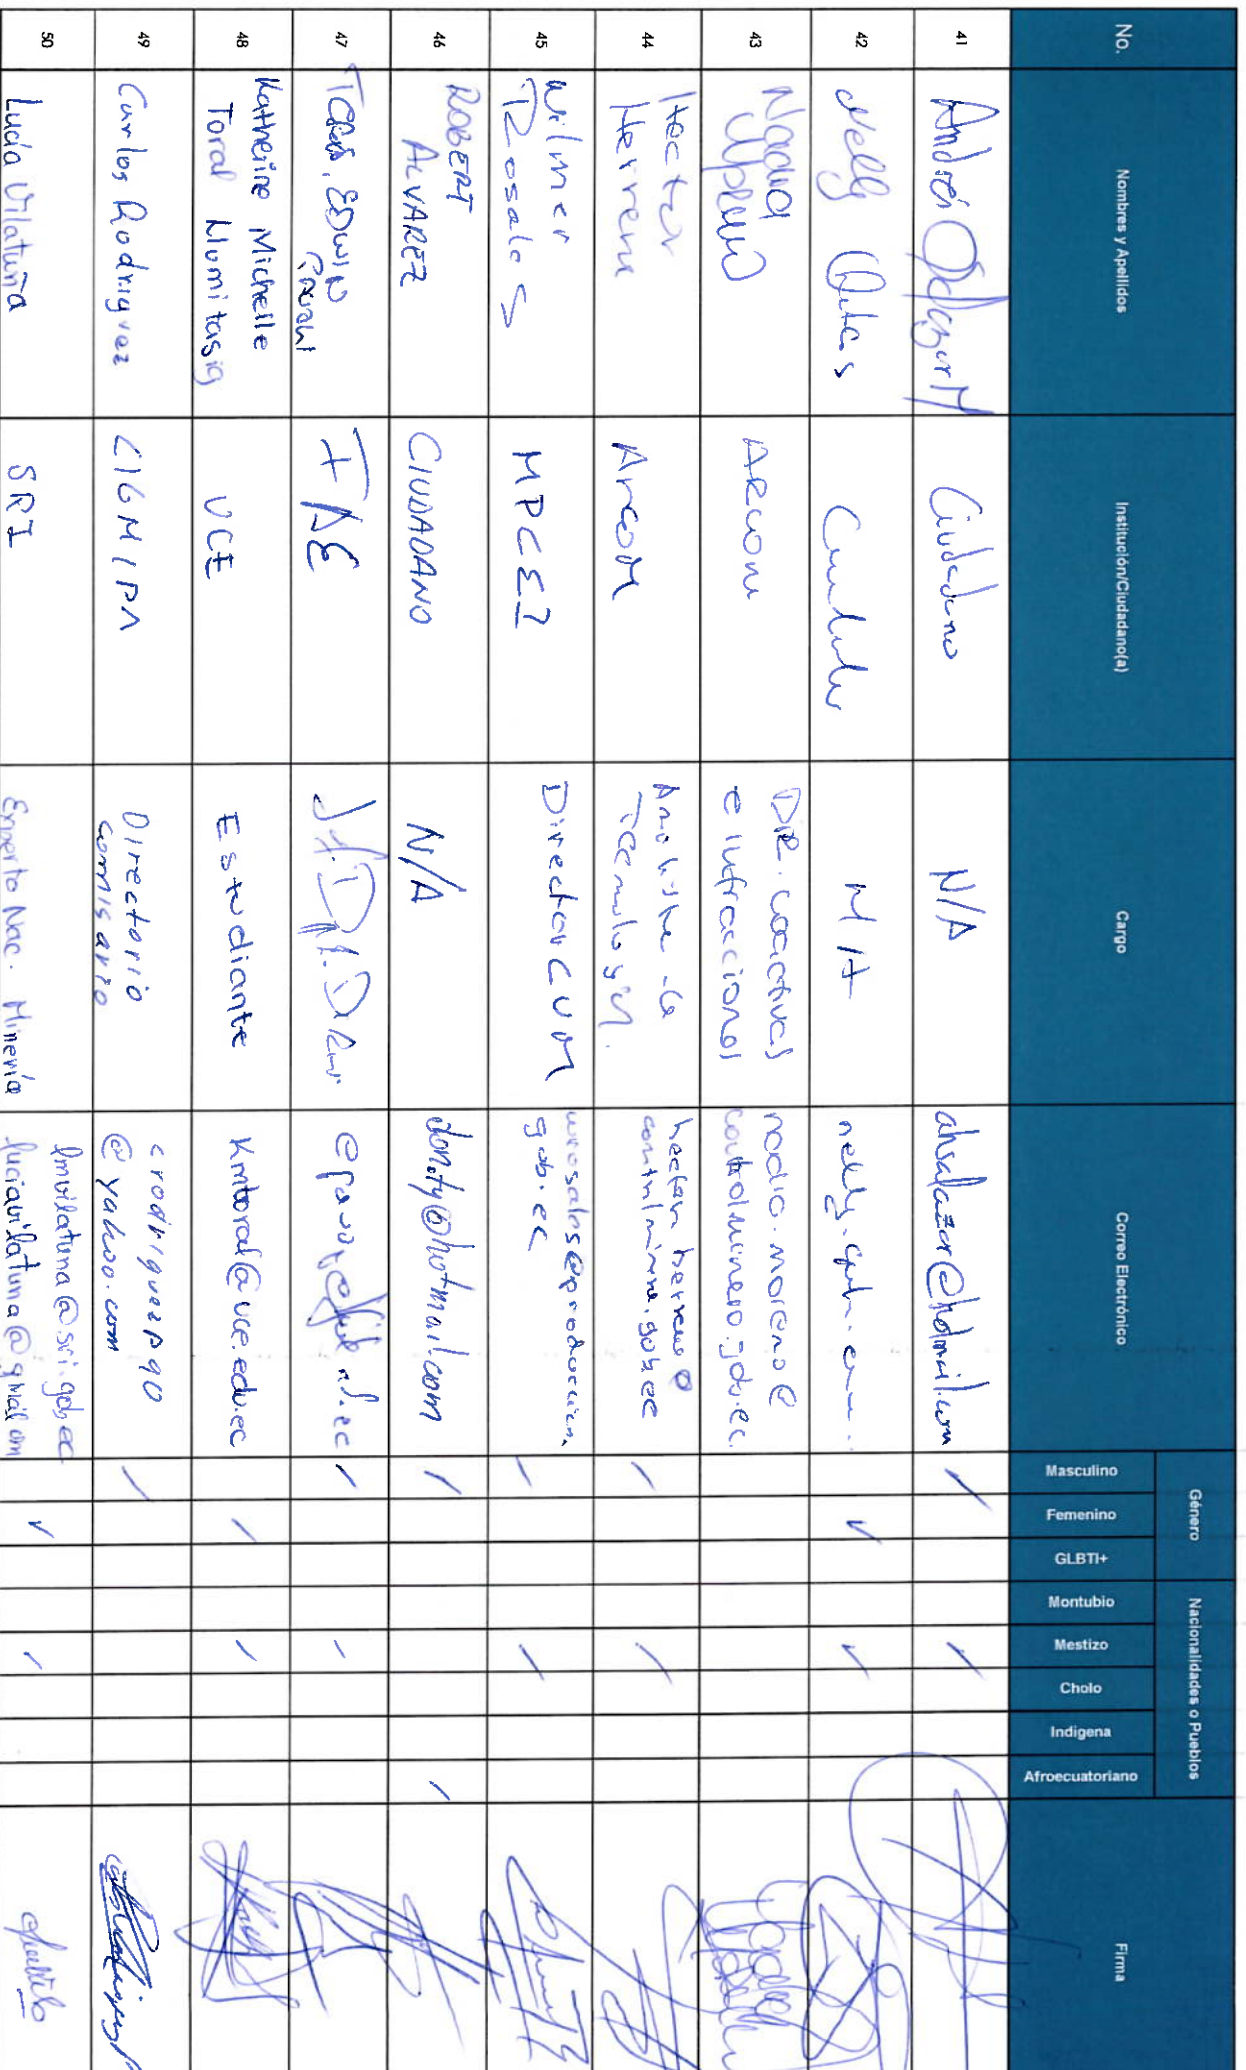 No.
Nombres y Apellidos
Institución/Ciudadano(a)
Cargo
Correo Electrónico
Género
Masculino
Femenino
GLBTI+
Nacionalidades o Pueblos
Montubio
Mestizo
Cholo
Indigena
Afroecuatoriano
Firma
41
Andrés
Ciudadano
N/A
ahsalazar@hotmail.com
42
Nelly
N/A
43
Nadia
ARCOM
DIR. coactivas
e infracciones
nadia.moreno@
controlminero.gob.ec.
44
Hector
Herrera
Arcom
Tecnología.
hector.herrera@
controlminero.gob.ec
45
Wilmer
Rosales
MPCEI
Director CUM
wrosales@produccion.
gob.ec
46
ROBERT
ALVAREZ
CIUDADANO
N/A
don.ty@hotmail.com
47
EDWIN
FAE
48
Katherine Michelle
Toral Llumitasig
UCE
Estudiante
Kmtoral@uce.edu.ec
49
Carlos Rodriguez
CIGMIPA
Directorio
comisario
crodriguezp90
@yahoo.com
50
Lucía Vilatuña
SRI
Experto Nac. Minería
lmvilatuna@sri.gob.ec
luciavilatuna@gmail.com